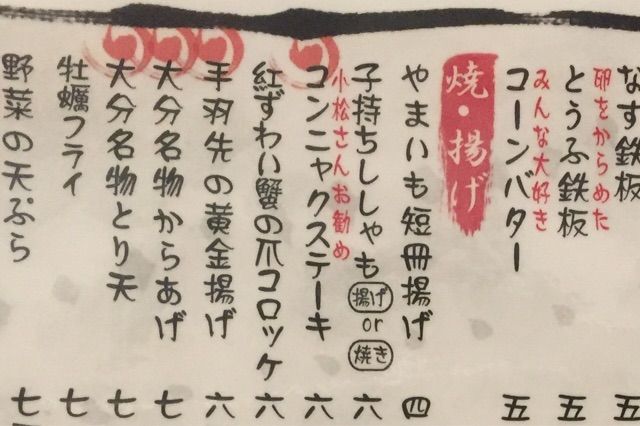 なす鉄板 五
卵をからめた
とうふ鉄板 五
みんな大好き
コーンバター 五
焼・揚げ
やまいも短冊揚げ 四
子持ちししゃも 揚げ or 焼き 六
小松さんお勧め
コンニャクステーキ 六
紅ずわい蟹の爪コロッケ 六
手羽先の黄金揚げ 六
大分名物からあげ 七
大分名物とり天 七
牡蠣フライ 七
野菜の天ぷら 七